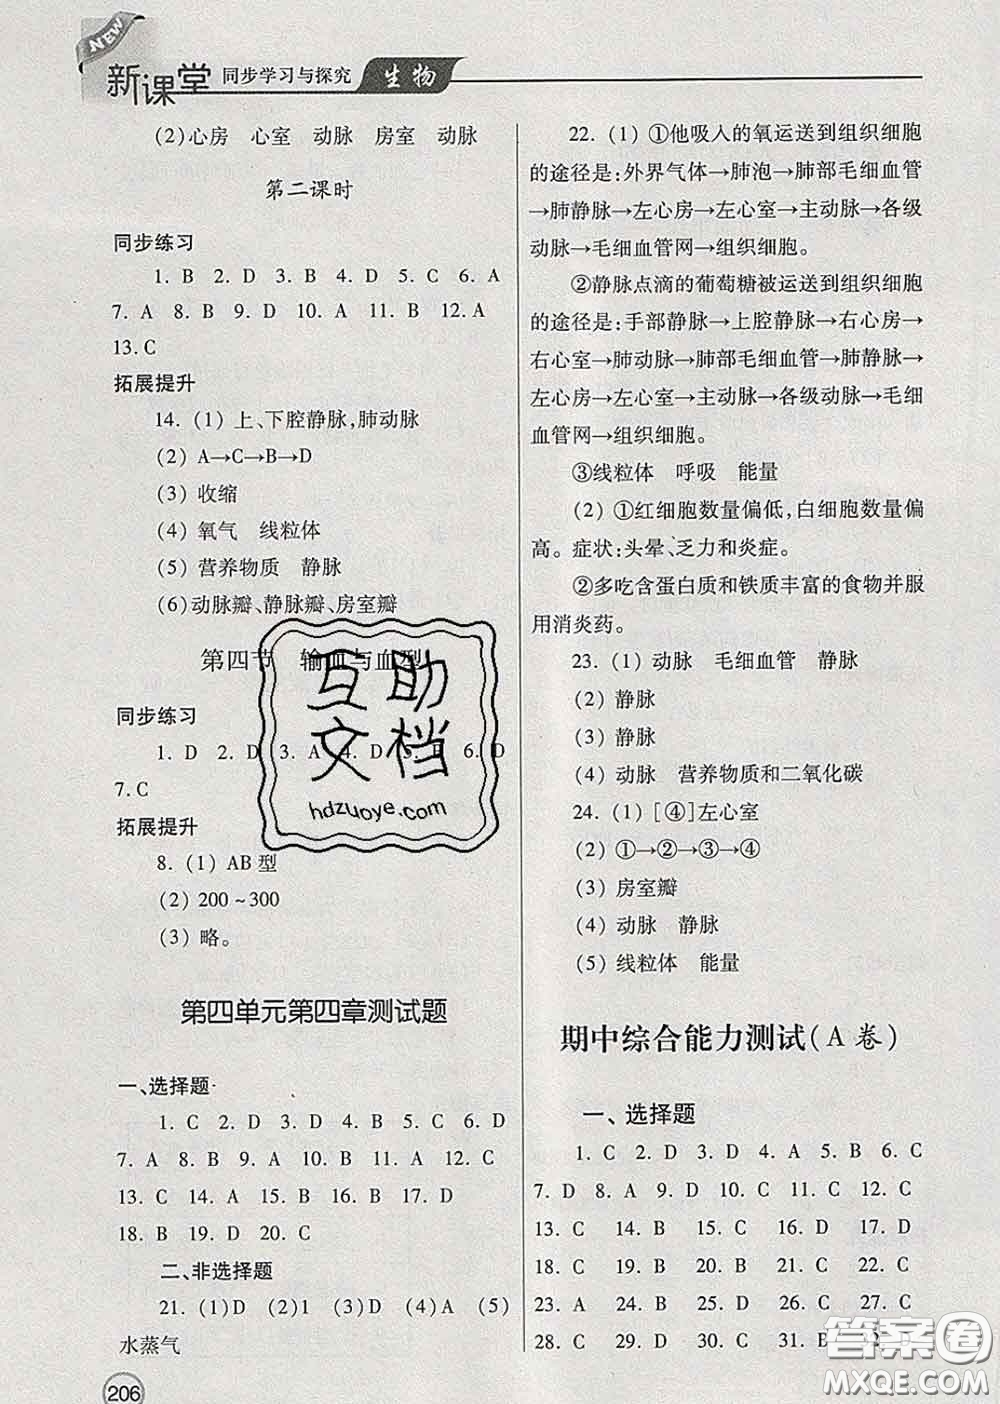 NEW
新课堂 同步学习与探究 生物
(2)心房 心室 动脉 房室 动脉
第二课时
同步练习
1. B 2. D 3. B 4. D 5. C 6. A
7. A 8. B 9. D 10. A 11. B 12. A
13. C
拓展提升
14. (1) 上、下腔静脉,肺动脉
(2) A→C→B→D
(3) 收缩
(4) 氧气 线粒体
(5) 营养物质 静脉
(6)动脉瓣、静脉瓣、房室瓣
第四节 输血与血型
同步练习
1. D 2. D 3. A 4. D 5. 6. D
7. C
拓展提升
8. (1) AB 型
(2) 200 ~ 300
(3) 略。
第四单元第四章测试题
一、选择题
1. C 2. D 3. D 4. B 5. C 6. D
7. A 8. B 9. A 10. B 11. A 12. C
13. C 14. A 15. B 16. B 17. D
18. B 19. D 20. C
二、非选择题
21. (1)D (2)1 (3)D (4)A (5)
水蒸气
206
22. (1) ①他吸入的氧运送到组织细胞
的途径是:外界气体→肺泡→肺部毛细血管
→肺静脉→左心房→左心室→主动脉→各级
动脉→毛细血管网→组织细胞。
②静脉点滴的葡萄糖被运送到组织细胞
的途径是:手部静脉→上腔静脉→右心房→
右心室→肺动脉→肺部毛细血管→肺静脉→
左心房→左心室→主动脉→各级动脉→毛细
血管网→组织细胞。
③线粒体 呼吸 能量
(2) ①红细胞数量偏低,白细胞数量偏
高。症状:头晕、乏力和炎症。
②多吃含蛋白质和铁质丰富的食物并服
用消炎药。
23. (1) 动脉 毛细血管 静脉
(2) 静脉
(3) 静脉
(4) 动脉 营养物质和二氧化碳
24. (1) [④]左心室
(2) ①→②→③→④
(3) 房室瓣
(4) 动脉 静脉
(5) 线粒体 能量
期中综合能力测试(A 卷)
一、选择题
1. C 2. D 3. D 4. A 5. B 6. C
7. D 8. A 9. D 10. C 11. C 12. C
13. C 14. B 15. C 16. D 17. D
18. C 19. B 20. B 21. C 22. D
23. A 24. B 25. D 26. C 27. C
28. C 29. D 30. C 31. B 32. D
互助文档
hdzuoye.com
答案圈
MXQE.COM